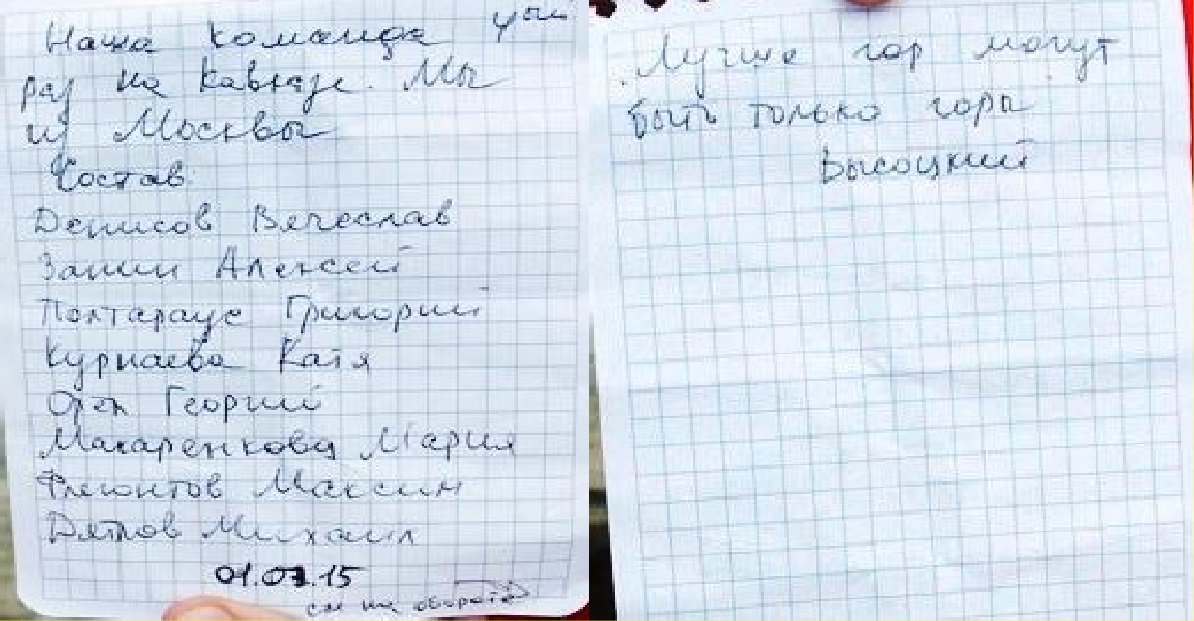 Наша команда 4ый
раз на Кавказе. Мы
из Москвы
Состав:
Денисов Вячеслав
Занин Алексей
Полтараус Григорий
Курнаева Катя
Орен Георгий
Макаренкова Мария
Флегонтов Максим
Дятлов Михаил
01.07.15
см на обороте
Лучше гор могут
быть только горы
Высоцкий